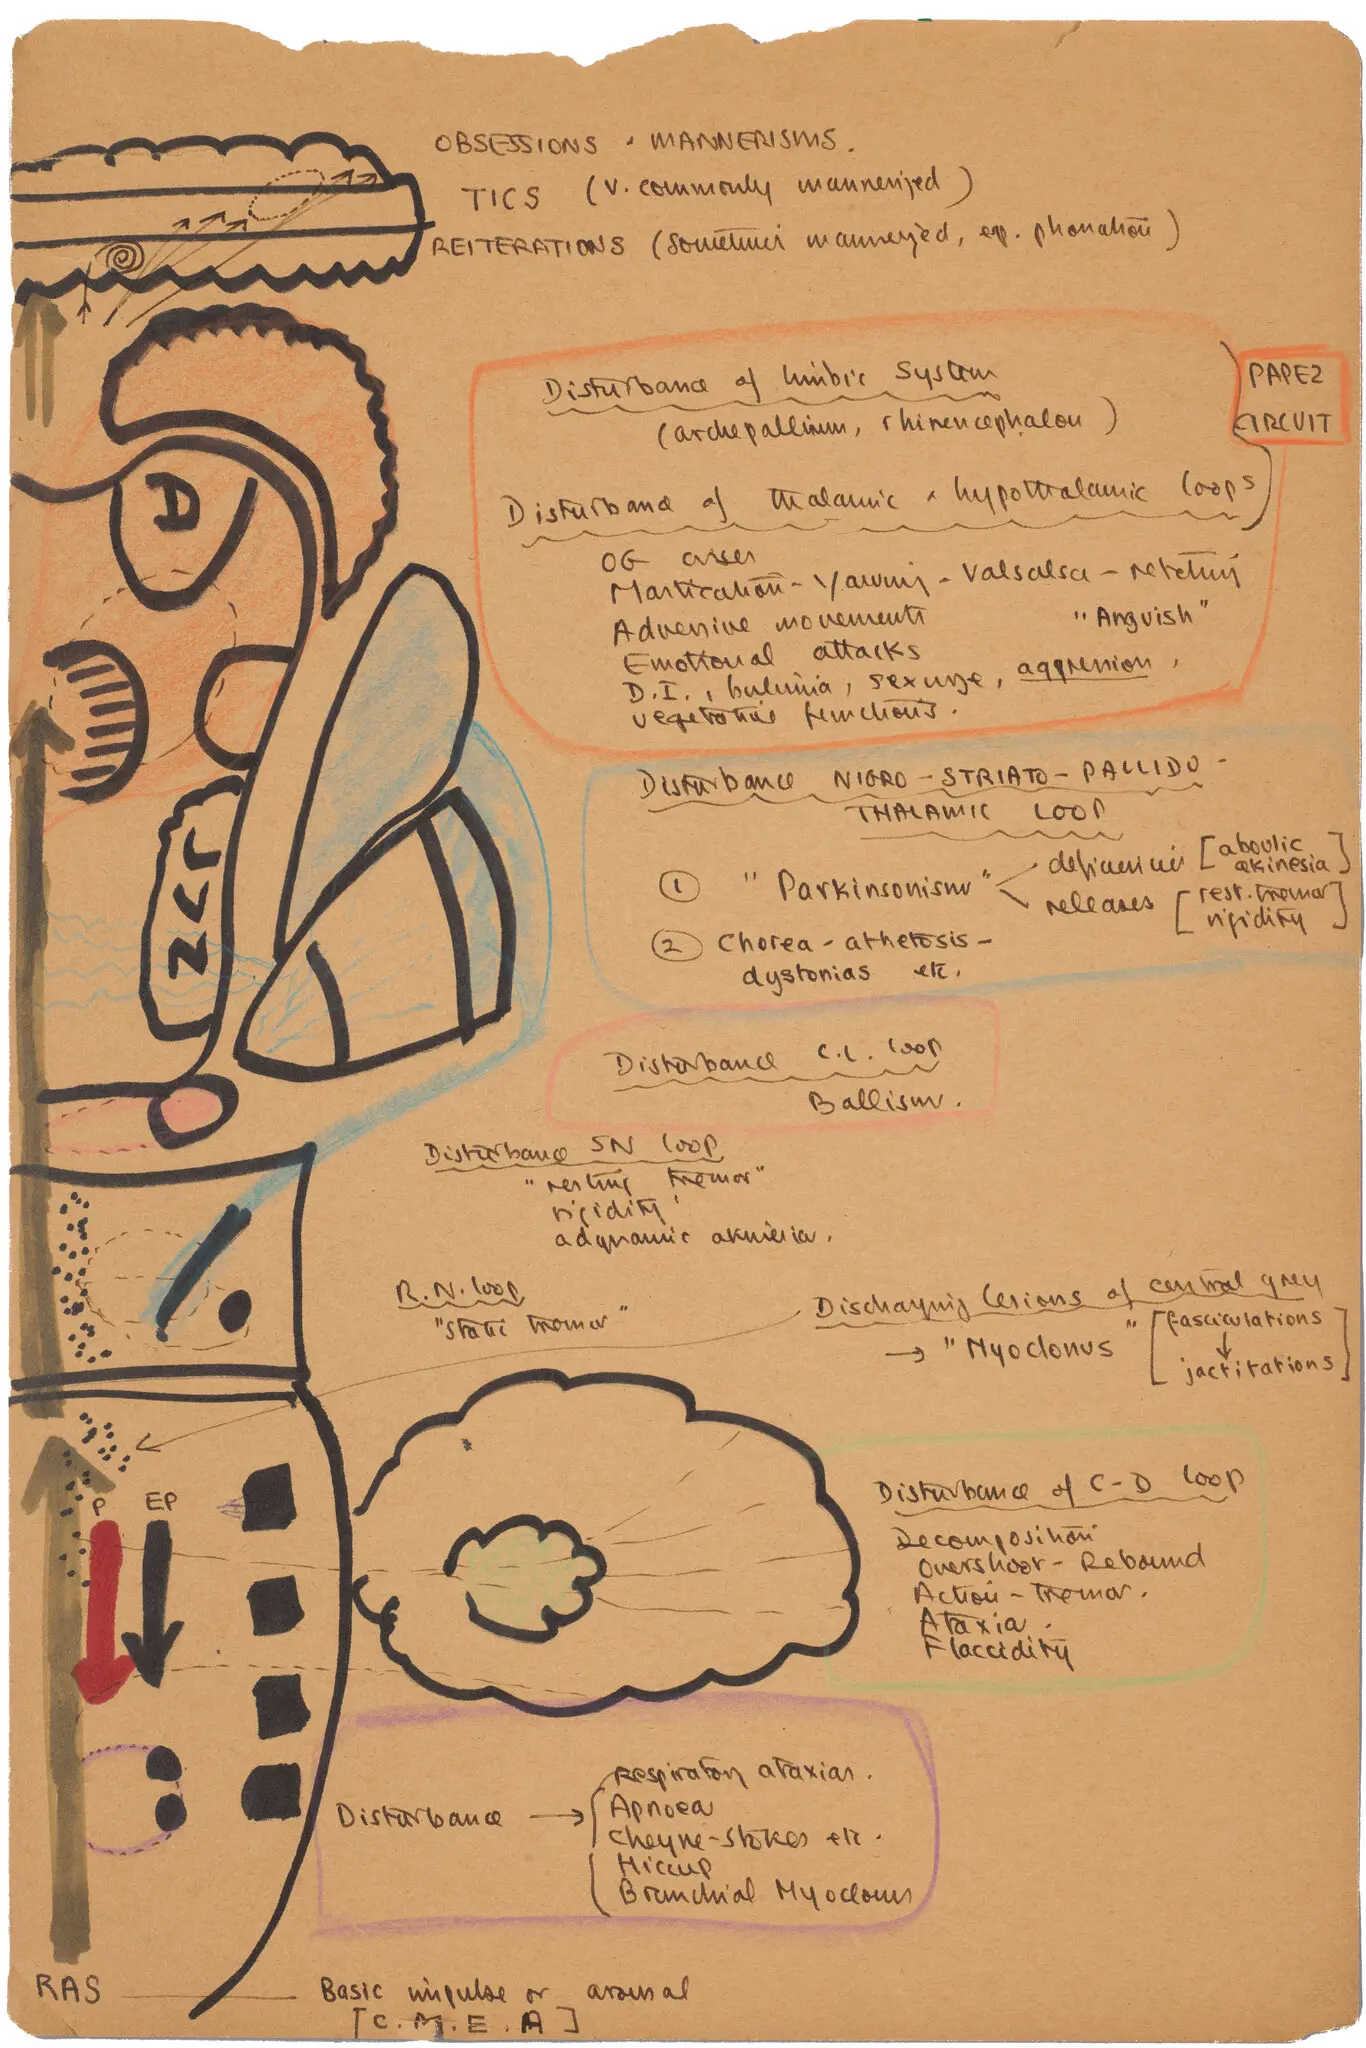 OBSESSIONS · MANNERISMS.
TICS (v. commonly mannerized)
REITERATIONS (sometimes mannerized, esp. phonation)
Disturbance of limbic system
(archepallium, rhinencephalon)
PAPEZ
CIRCUIT
Disturbance of thalamic & hypothalamic loops
OG crises
Mastication - Yawning - Valsalsa - retching
Adversive movements "Anguish"
Emotional attacks
D.I., bulimia, sexurge, aggression,
vegetative functions.
A
Disturbance NIGRO - STRIATO - PALLIDO -
THALAMIC LOOP
① "Parkinsonism"
deficiencies [aboulic akinesia]
releases [rest. tremor rigidity]
② Chorea - athetosis -
dystonias etc.
Disturbance C.L. loop
Ballism.
Disturbance SN loop
"resting tremor"
rigidity
adynamic akinesia.
R.N. loop
"static tremor"
Discharging lesions of central grey
→ "Myoclonus" [fasciulations
↓
jactitations]
P EP
Disturbance of C-D loop
Decomposition
Overshoot - Rebound
Action - Tremor.
Ataxia.
Flaccidity
Disturbance →
Respiratory ataxias.
Apnoea
Cheyne-Stokes etc.
Hiccup
Branchial Myoclonus
RAS Basic impulse or arousal
[C.M.E.A]